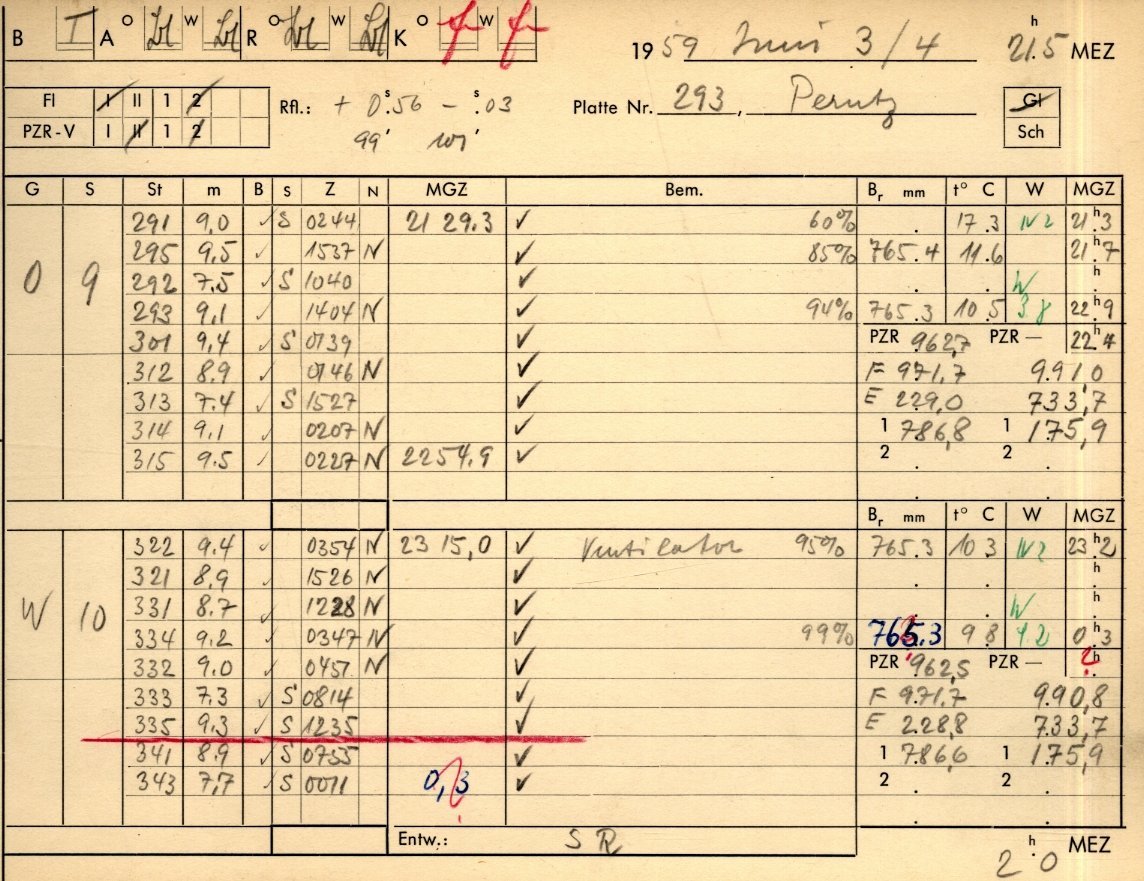 B I A O W R O W K O W 1959 Juni 3/4 21.5 h MEZ
Fl I II 1 2 Rfl.: + 0.s56 - .s03 Platte Nr. 293, Perutz Gl
PZR-V I II 1 2 99' 101' Sch
G S St m B S Z N MGZ Bem. Br mm t° C W MGZ
291 9,0 ✓ S 0244 21 29.3 ✓ 60% . 17.3 N 2 21h.3
295 9.5 ✓ 1537 N ✓ 85% 765.4 11.6 21h.7
O 9 292 7.5 ✓ S 1040 ✓ . . W h
293 9,1 ✓ 1404 N ✓ 94% 765.3 10.5 3 8 22h.9
301 9,4 ✓ S 0739 ✓ PZR 962,7 PZR — 22h4
312 8.9 ✓ 0746 N ✓ F 971,7 9.91,0
313 7.4 ✓ S 1527 ✓ E 229,0 733,7
314 9,1 ✓ 0207 N ✓ 1 786,8 1 175,9
315 9.5 ✓ 0227 N 2254,9 ✓ 2 . 2 .
Br mm t° C W MGZ
322 9.4 ✓ 0354 N 23 15,0 ✓ Ventilator 95% 765.3 10.3 N 2 23h.2
321 8,9 ✓ 1526 N ✓ . . h
W 10 331 8.7 ✓ 1228 N ✓ . . W h
334 9.2 ✓ 0347 N ✓ 99% 765.3 9.8 4.2 0h.3
332 9.0 ✓ 0451 N ✓ PZR 962,5 PZR — ? h
333 7.3 ✓ S 0814 ✓ F 971,7 990,8
335 9.3 ✓ S 1235 ✓ E 228,8 733,7
341 8.9 ✓ S 0755 ✓ 1 786,6 1 175,9
343 7,7 ✓ S 0011 0,3 ✓ 2 . 2 .
Entw.: SR 2.0 h MEZ